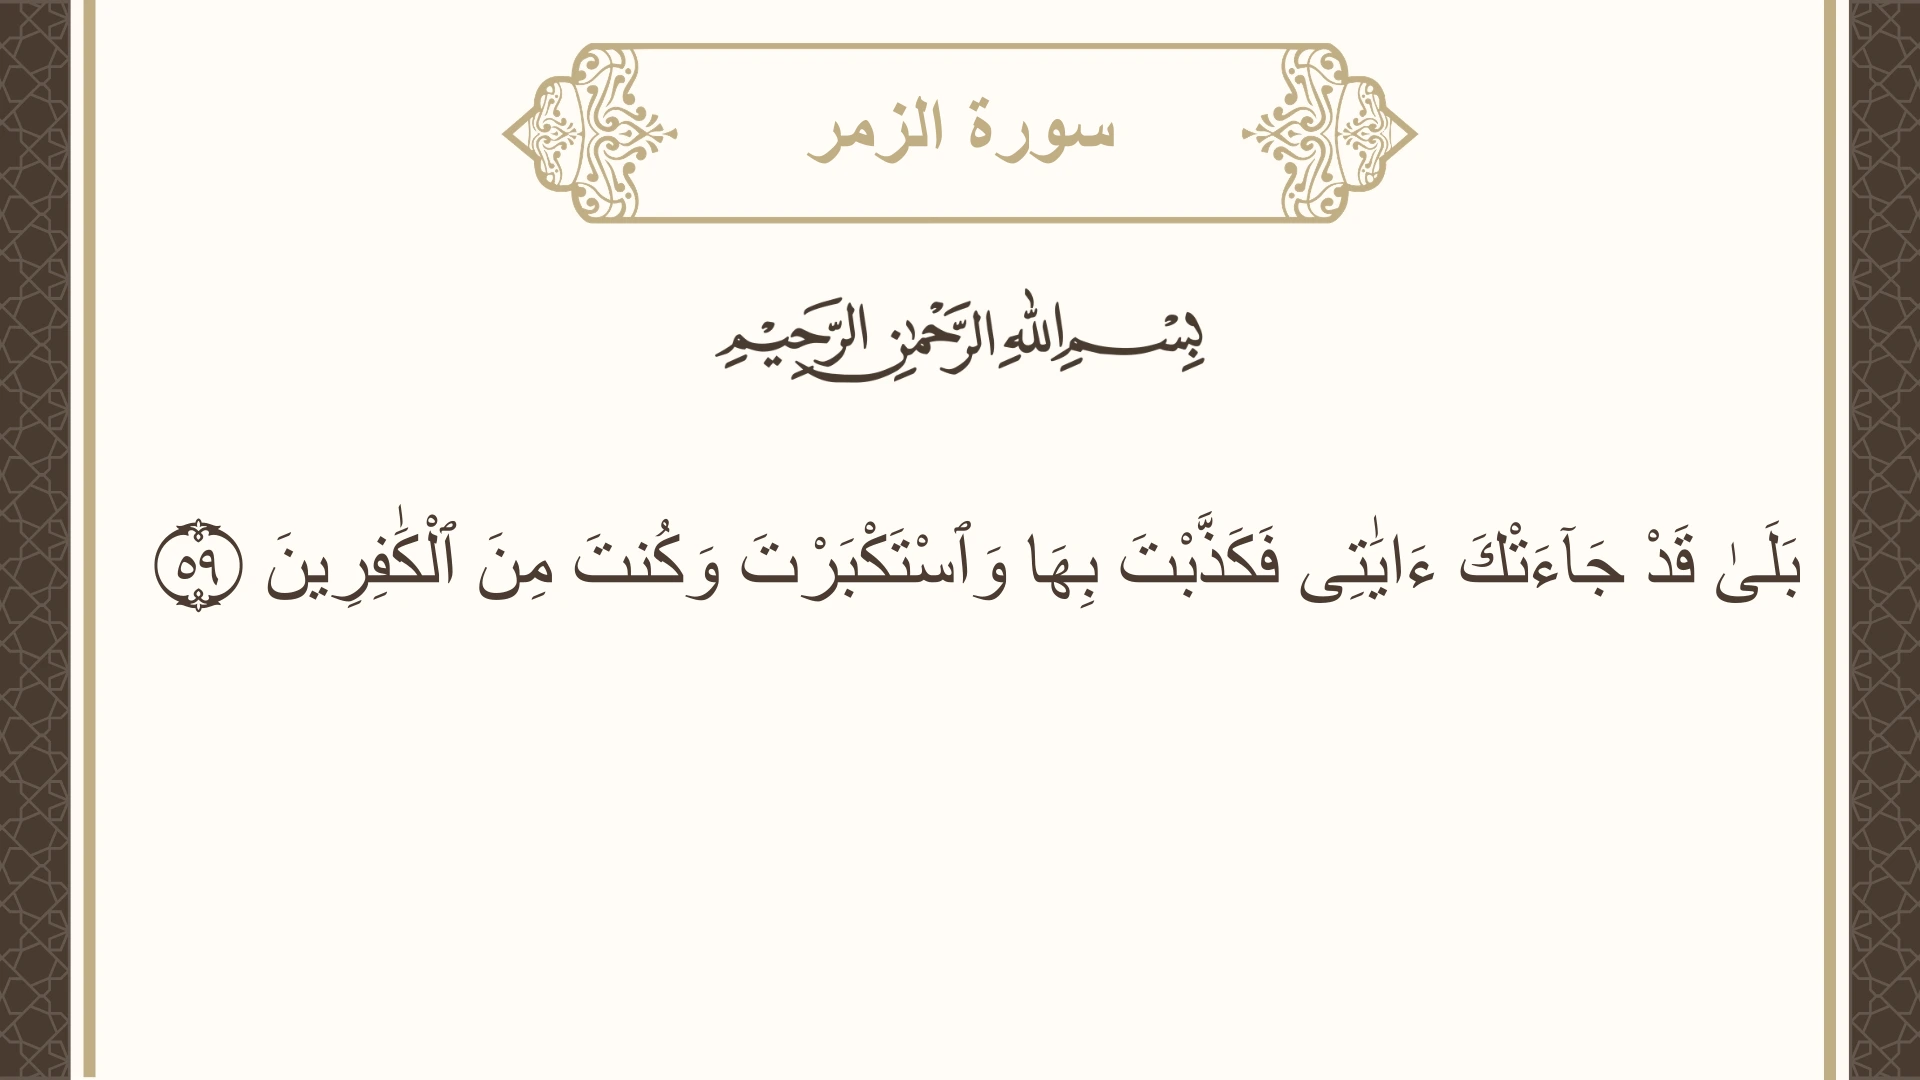 سورة الزمر
بِسْمِ اللهِ الرَّحْمٰنِ الرَّحِيْمِ
بَلَىٰ قَدْ جَآءَتْكَ ءَايَٰتِى فَكَذَّبْتَ بِهَا وَٱسْتَكْبَرْتَ وَكُنتَ مِنَ ٱلْكَٰفِرِينَ ٥٩